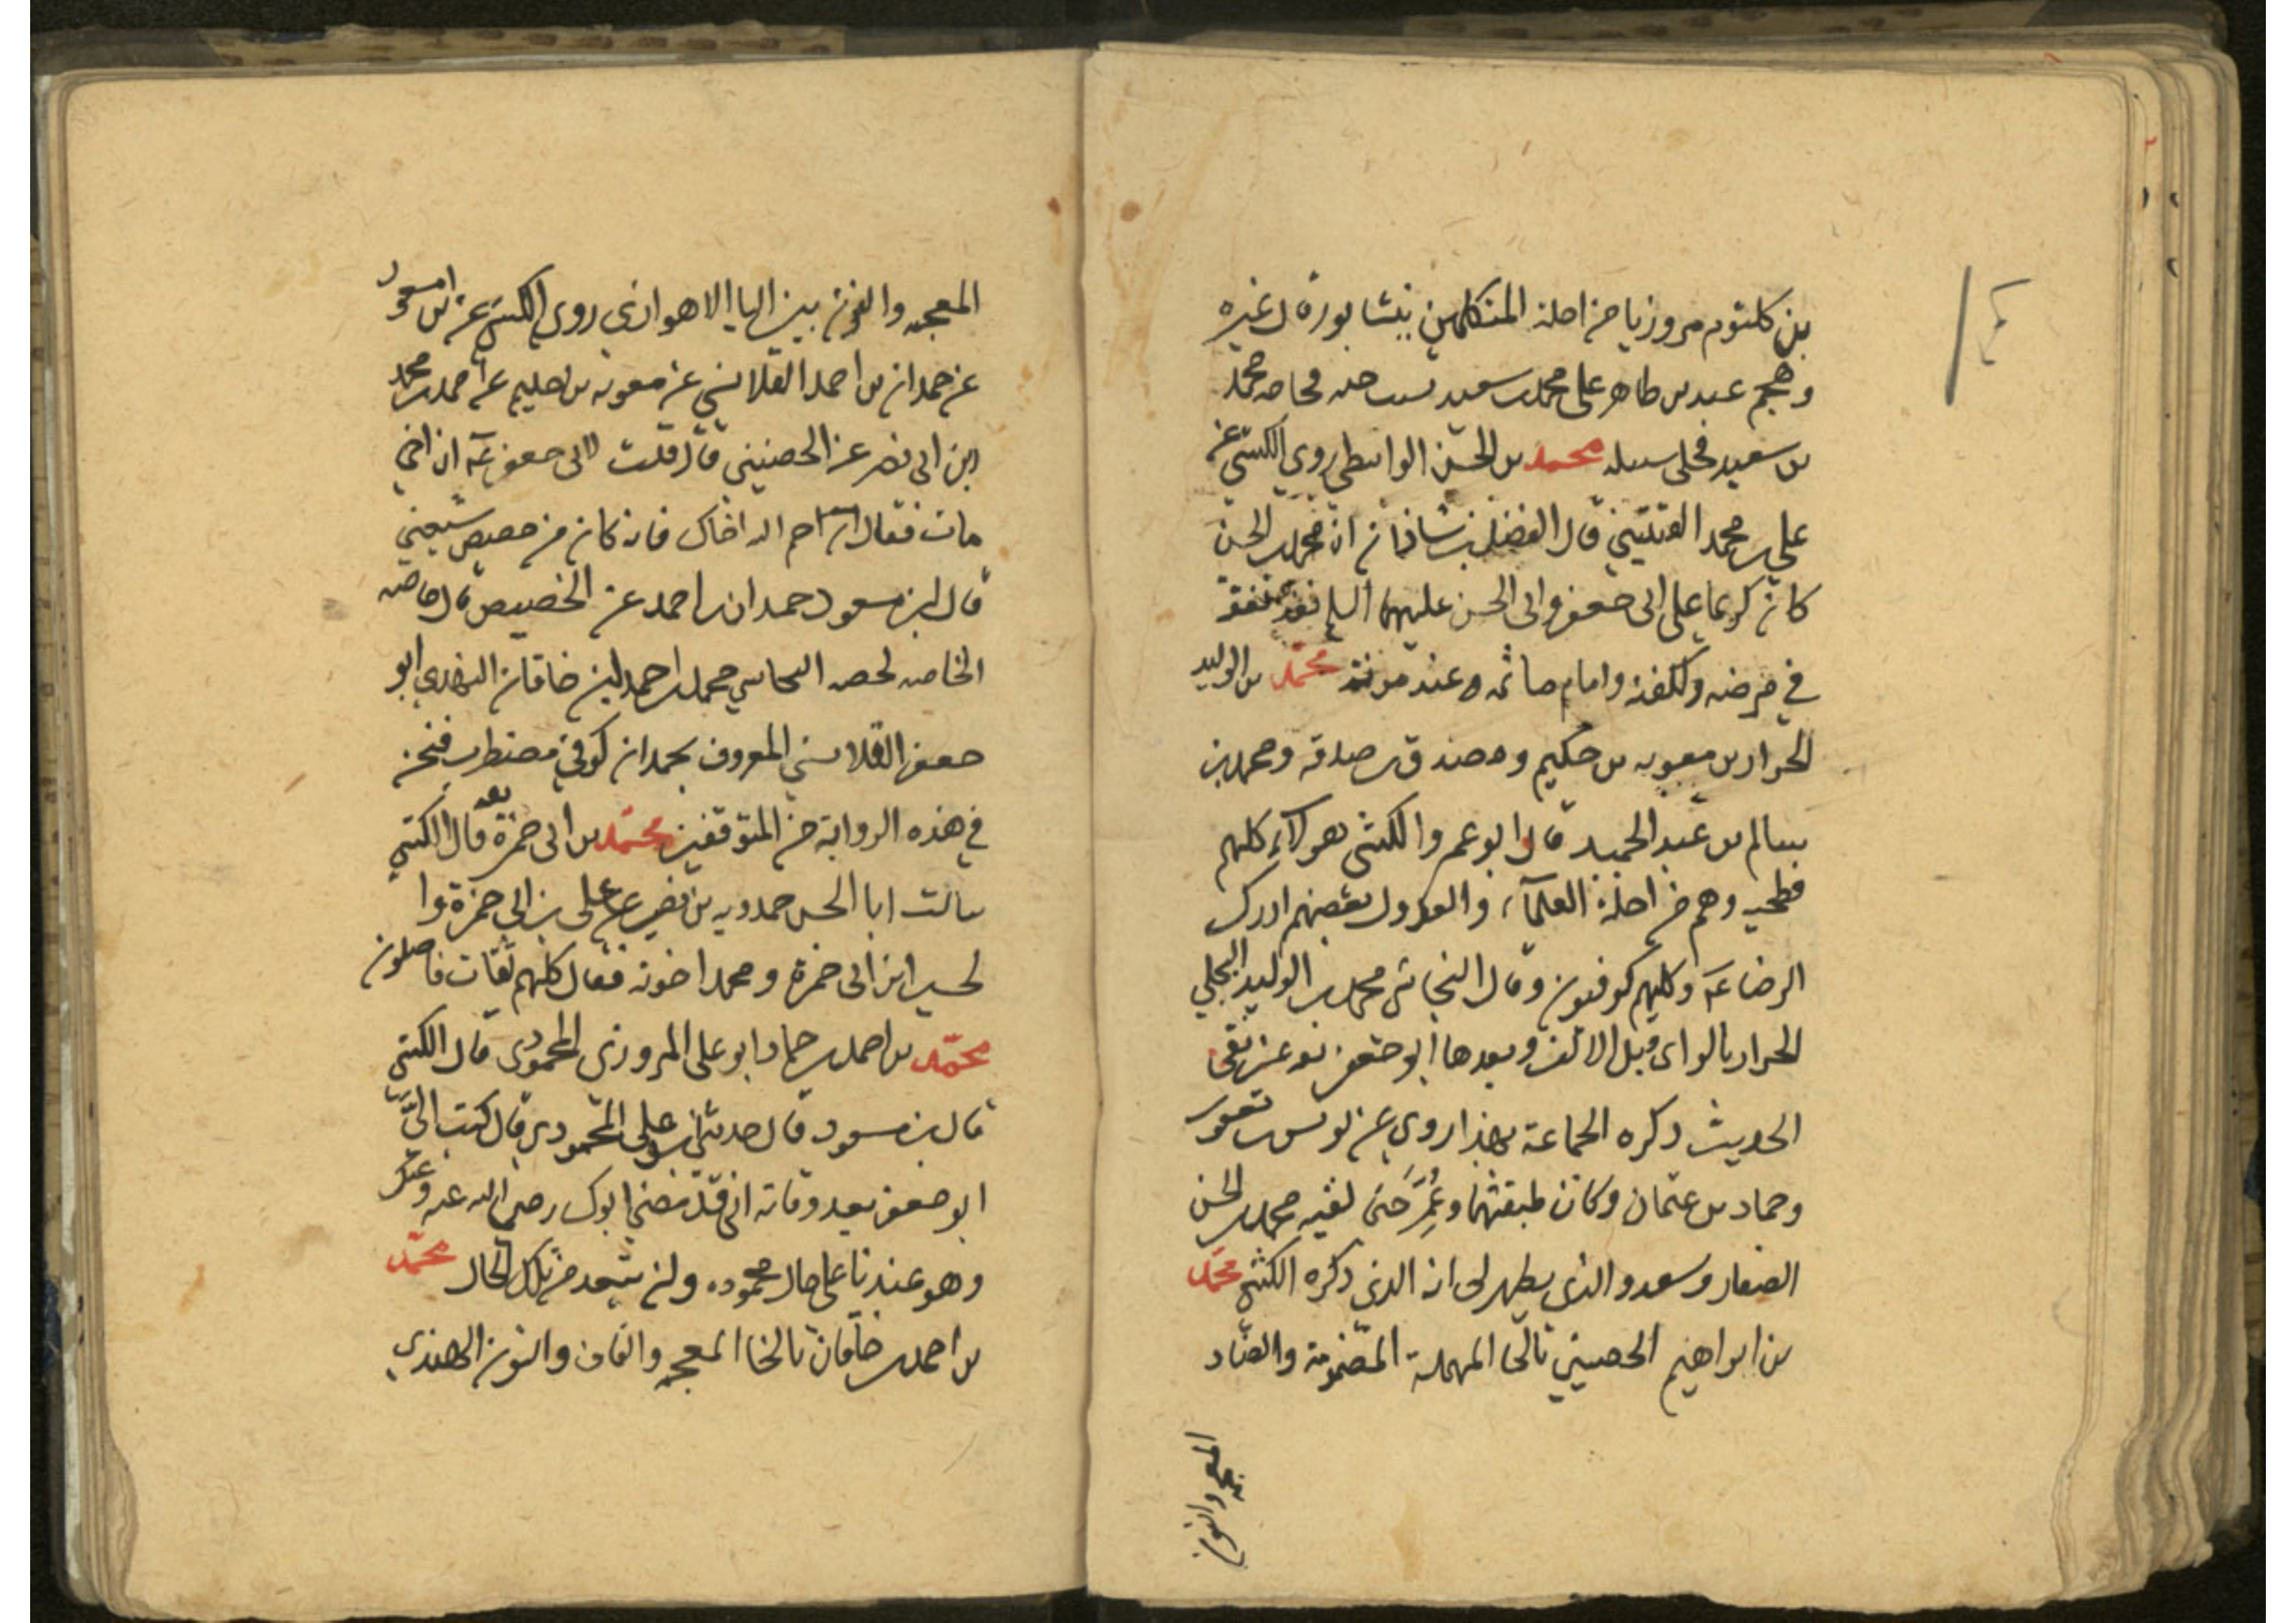 بن كلثوم مروزيا من اجلة المتكلمين بنيشابور وقال غيره
وهجم عبد بن طاهر على محمد بن سعيد بسبب خبثه فحاجه محمد
بن سعيد فخلى سبيله محمد بن الحسن الواسطي روى الكشي عن
علي بن محمد القتيبي قال الفضل بن شاذان ان محمد بن الحسن
كان كريما على ابي جعفر وابي الحسن عليهما السلم
في مرضه وكفنه واقام ماتمه عند موته محمد بن الوليد
الخزاز بن معويه بن حكيم ومصدق بن صدقه ومحمد بن
سالم بن عبد الحميد قال ابو عمرو الكشي هولاء كلهم
فطحيه وهم من اجلة العلمآء والعدول بعضهم ادرك
الرضا عه وكلهم كوفيون وقال النجاشي محمد بن الوليد البجلي
الخزاز بالزاى قبل الالف وبعدها ابو جعفر ثقه عين نقى
الحديث ذكره الجماعة بهذا روى عن يونس بن يعقوب
وحماد بن عثمان وكان طبقتهما وعُمِّرَ حَتى لقيه محمد بن الحسن
الصفار وسعد والذي يظهر لى انه الذي ذكره الكشي محمّد
بن ابراهيم الحضيني بالحا المهملة المضمومة والضاد
المعجمه والنون
المعجمه والنون بين اليا الاهوازي روى الكشي عن ابن مسعود
عن حمدان بن احمد القلانسي عن معويه بن حكيم عن احمد بن محمد
بن ابي نصر عن الحضيني قال قلت لابى جعفر عه ان اخي
مات فقال رحم الله اخاك فانه كان من خصيص شيعتي
قال ابن مسعود حمدان بن احمد عن الخصيص قال خاصه
الخاصه النجاشي محمد بن احمد بن خاقان النهدي ابو
جعفر القلانسي المعروف بحمدان كوفي مضطرب فنحن
في هذه الرواية من المتوقفين محمّد بن ابى حمزة ثقه قال الكشي
سالت ابا الحسن حمدويه بن نصير عن على بن ابى حمزة وا
لحسين ابن ابى حمزة ومحمد اخوته فقال كلهم ثقات فاضلون
محمّد بن احمد بن حماد ابو على المروزى المحمودى قال الكشي
قال بن مسعود قال حدثنى ابو على المحمودى قال كتب الىَّ
ابو جعفر بعد وفاة ابى قد مضى ابوك رضي الله عنه وعنك
وهو عندنا على حال محموده ولن تبعد من تلك الحال محمّد
بن احمد بن خاقان بالخا المعجمه والقاف والنون النهدي